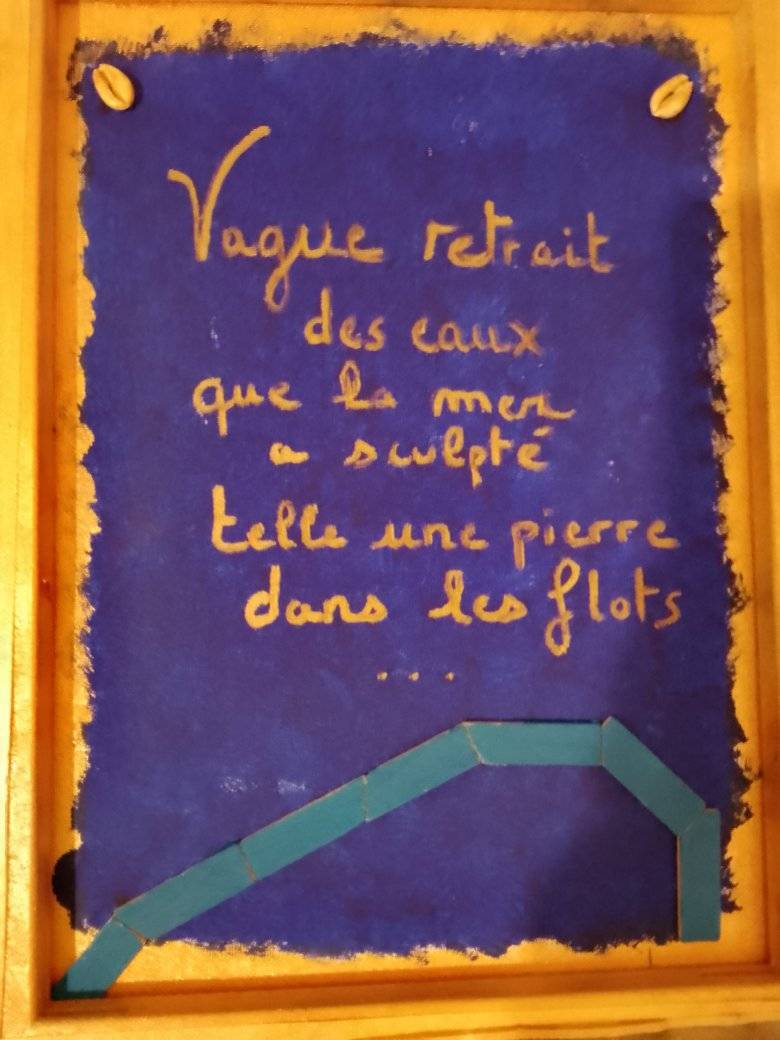 Vague retrait
des eaux
que la mer
a sculpté
telle une pierre
dans les flots
...